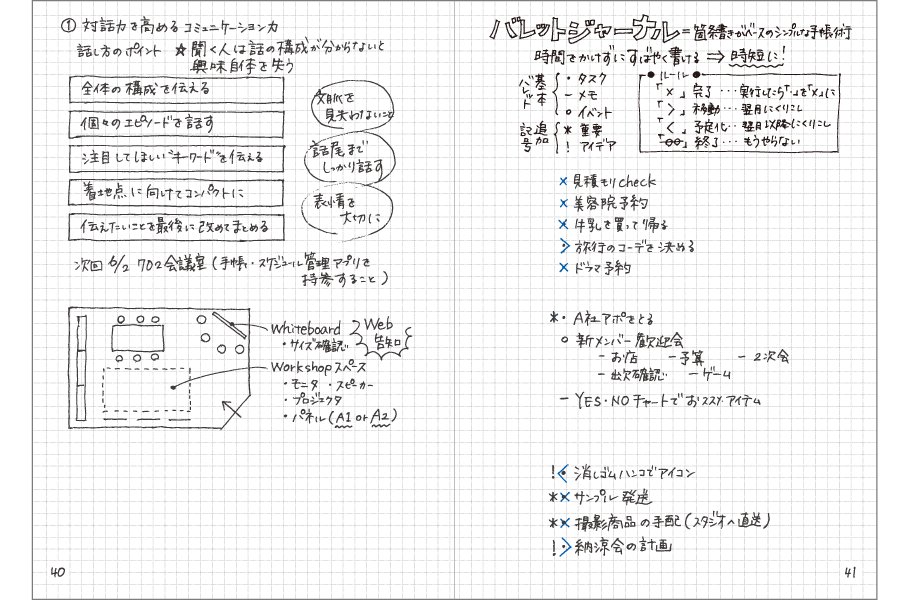 ① 対話力を高めるコミュニケーション力
話し方のポイント ☆聞く人は話の構成が分からないと
興味自体を失う
全体の構成を伝える
個々のエピソードを話す
注目してほしい"キーワード"を伝える
着地点に向けてコンパクトに
伝えたいことを最後に改めてまとめる
文脈を
見失わないこと
話尾まで
しっかり話す
表情を
大切に
次回 6/2 702会議室(手帳・スケジュール管理アプリを
持参すること)
Whiteboard
・サイズ確認
Web
告知
Workshopスペース
・モニタ ・スピーカー
・プロジェクタ
・パネル(A1 or A2)
40
バレットジャーナル=箇条書きがベースのシンプルな手帳術
時間をかけずにすばやく書ける ⇒ 時短に!
基本
バレット
・ タスク
− メモ
○ イベント
追加
記号
* 重要
! アイデア
● ルール ●
「×」完了…実行したら「・」を「×」に
「>」移動…翌月にくりこし
「<」予定化…翌月以降にくりこし
「〇〇」終了…もうやらない
× 見積もりcheck
× 美容院予約
× 牛乳を買って帰る
> 旅行のコーデを決める
× ドラマ予約
*・ A社アポをとる
○ 新メンバー歓迎会
− お店 − 予算 − 2次会
− 出欠確認 − ゲーム
− YES・NOチャートでおススメアイテム
!< 消しゴムハンコでアイコン
*× サンプル発送
*× 撮影商品の手配(スタジオへ直送)
!> 納涼会の計画
41